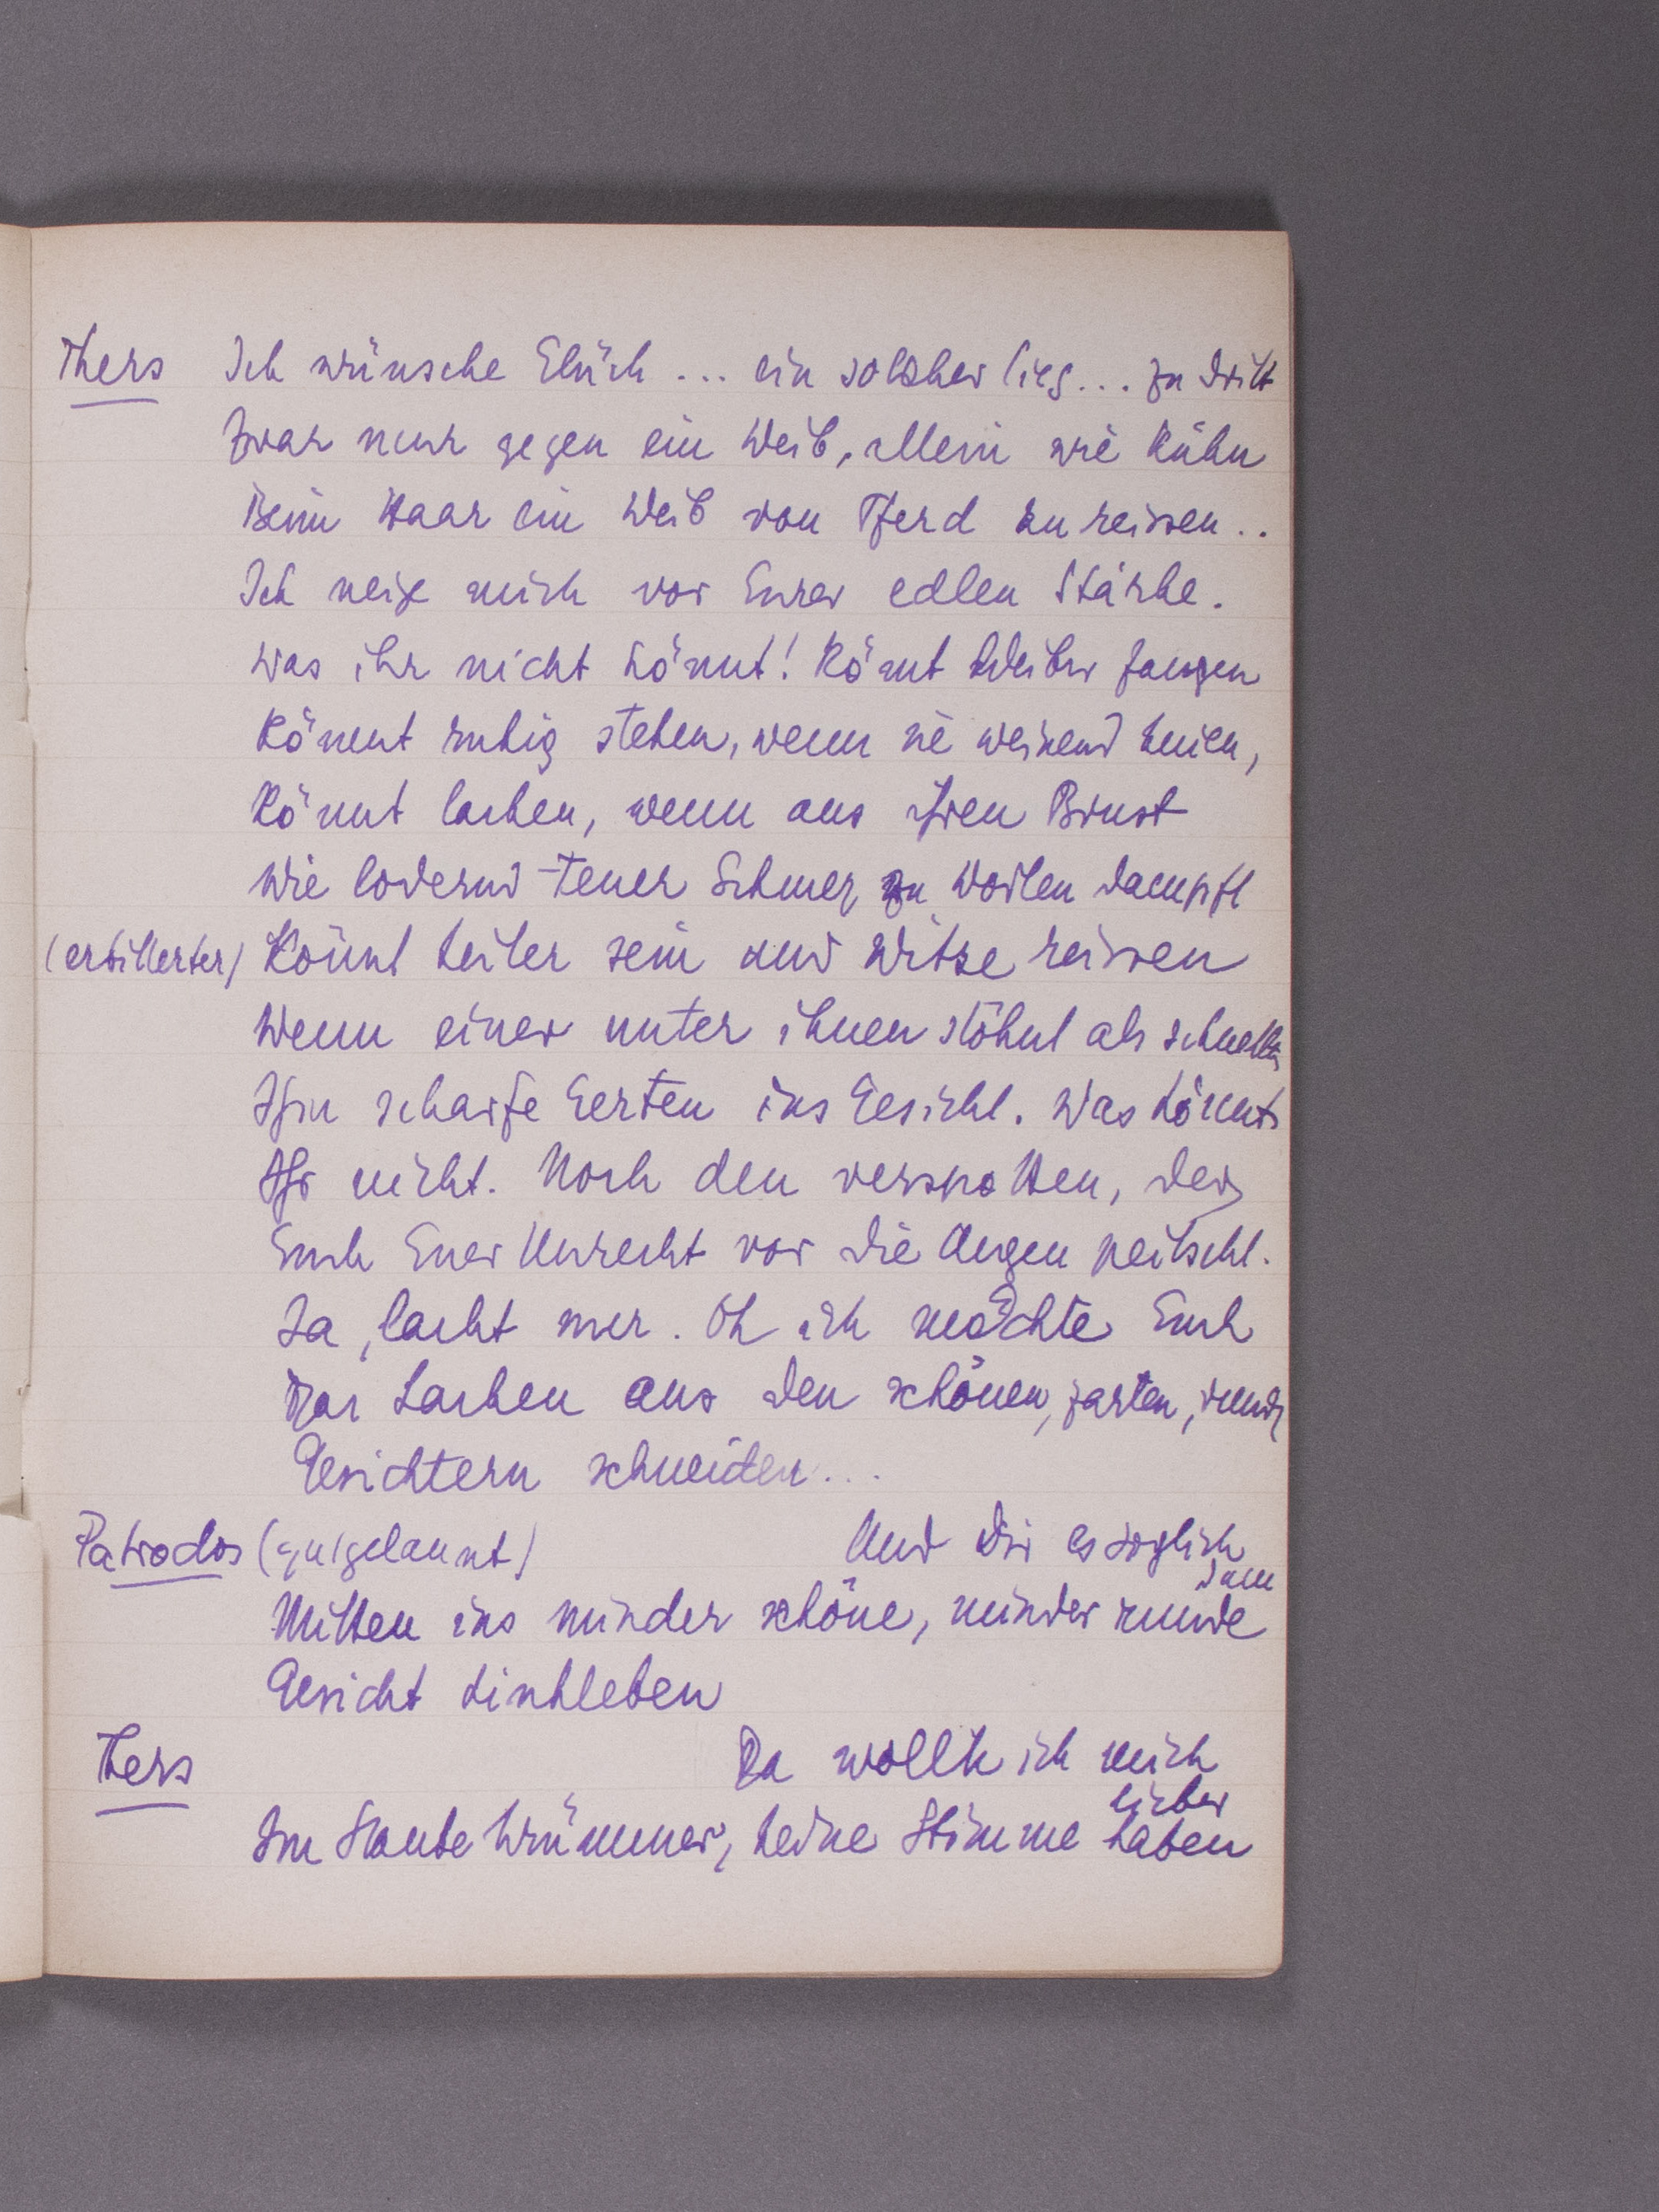 Thers Ich wünsche Glück ... ein solcher Sieg ... zu dritt
Zwar nur gegen ein Weib, allein wie kühn
Beim Haar ein Weib von Pferd zu reissen ..
Ich neige mich vor Eurer edlen Stärke.
Was ihr nicht könnt! Könnt Weiber fangen
Könnt ruhig stehen, wenn sie weinend knien,
Könnt lachen, wenn aus ihren Brust
Wie lodernd Feuer Schmerz zu Wolken dampft
(erbitterter) Könnt heiter sein und Witze reissen
Wenn einer unter ihnen stöhnt als schnellten
Ihm scharfe Gerten ins Gesicht. Was könnt
Ihr nicht. Noch den verspotten, der
Euch Euer Unrecht vor die Augen peitscht.
Ja, lacht nur. Oh ich möchte Euch
Das Lachen aus den schönen, zarten, runden
Gesichtern schneiden ...
Patroclos (gutgelaunt) Und Dir es sogleich
dann
Mitten ins minder schöne, minder runde
Gesicht hinkleben
Thers Da wollte ich mich
lieber
Im Staube krümmen, keine Stimme haben